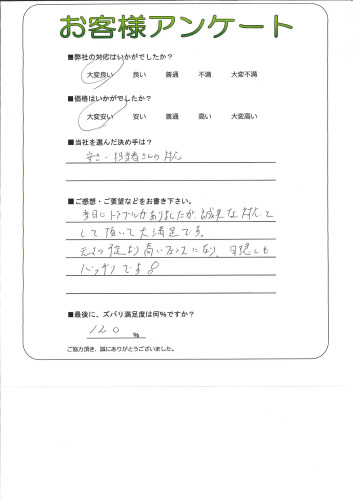 お客様アンケート
■弊社の対応はいかがでしたか？
大変良い 良い 普通 不満 大変不満
■価格はいかがでしたか？
大変安い 安い 普通 高い 大変高い
■当社を選んだ決め手は？
安さ・担当者さんの対応
■ご感想・ご要望などをお書き下さい。
当日にトラブルがありましたが、誠実な対応を
して頂いて大満足です。
元々の位置より高い
バッチリです!
■最後に、ズバリ満足度は何％ですか？
120 ％
ご協力頂き、誠にありがとうございました。